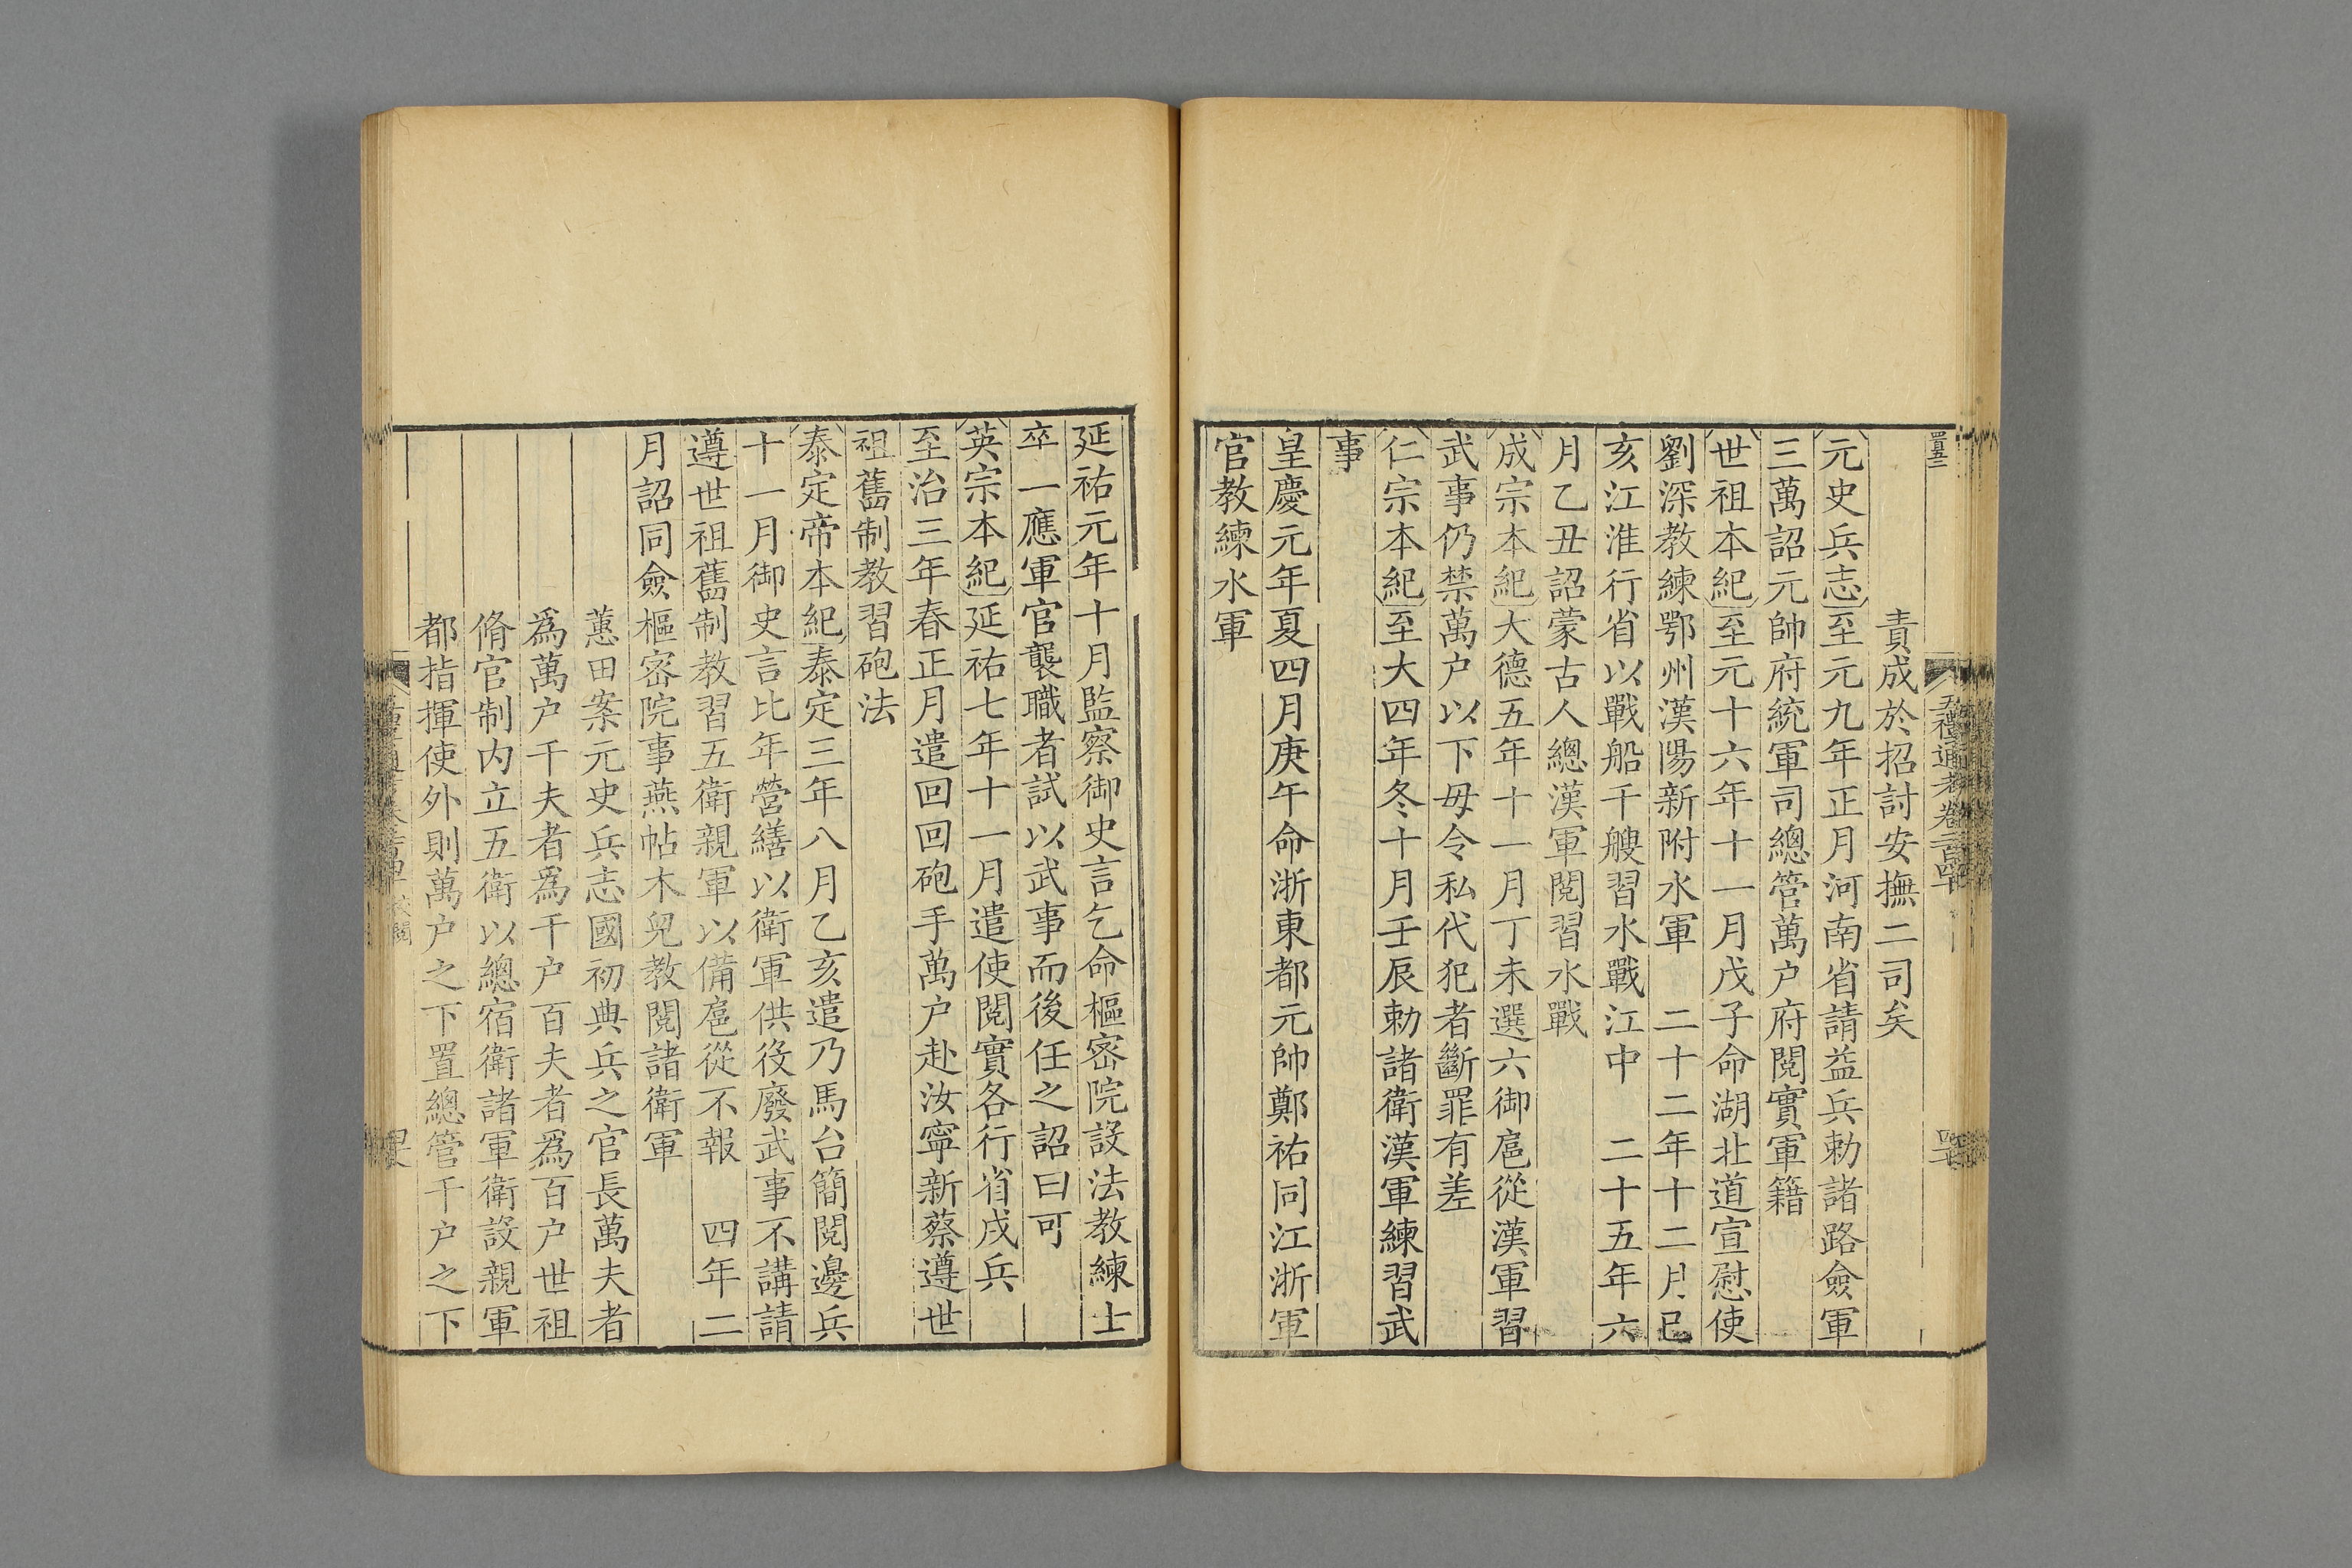 責成於招討安撫二司矣
元史兵志至元九年正月河南省請益兵勅諸路僉軍
三萬詔元帥府統軍司總管萬户府閱實軍籍
世祖本紀至元十六年十一月戊子命湖北道宣慰使
劉深教練鄂州漢陽新附水軍　二十二年十二月已
亥江淮行省以戰船千艘習水戰江中　二十五年六
月乙丑詔蒙古人總漢軍閱習水戰
成宗本紀大德五年十一月丁未選六御扈從漢軍習
武事仍禁萬户以下毋令私代犯者斷罪有差
仁宗本紀至大四年冬十月壬辰勅諸衛漢軍練習武
事
皇慶元年夏四月庚午命浙東都元帥鄭祐同江浙軍
官教練水軍
延祐元年十月監察御史言乞命樞密院設法教練士
卒一應軍官襲職者試以武事而後任之詔曰可
英宗本紀延祐七年十一月遣使閱實各行省戍兵
至治三年春正月遣回回砲手萬户赴汝寧新蔡遵世
祖舊制教習砲法
泰定帝本紀泰定三年八月乙亥遣乃馬台簡閱邊兵
十一月御史言比年營繕以衛軍供役廢武事不講請
遵世祖舊制教習五衛親軍以備扈從不報　四年二
月詔同僉樞密院事燕帖木兒教閱諸衛軍
蕙田案元史兵志國初典兵之官長萬夫者
爲萬户千夫者爲千户百夫者爲百户世祖
脩官制内立五衛以總宿衛諸軍衛設親軍
都指揮使外則萬户之下置總管千户之下